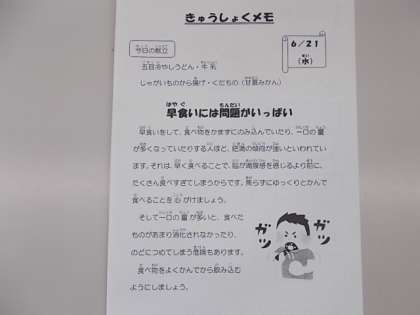 きゅうしょくメモ
今日の献立
6/21
(水)
五目冷やしうどん・牛乳
じゃがいものから揚げ・くだもの(甘夏みかん)
早食いには問題がいっぱい
早食いをして、食べ物をかまずにのみ込んでいたり、一口の量
が多くなっていたりする人ほど、肥満の傾向が強いといわれてい
ます。それは、早く食べることで、脳が満腹感を感じるより前に、
たくさん食べすぎてしまうからです。焦らずにゆっくりとかんで
食べることを心がけましょう。
そして一口の量が多いと、食べた
ものがあまり消化されなかったり、
のどにつめてしまう危険もあります。
食べ物をよくかんでから飲み込む
ようにしましょう。
ガツ
ガツ